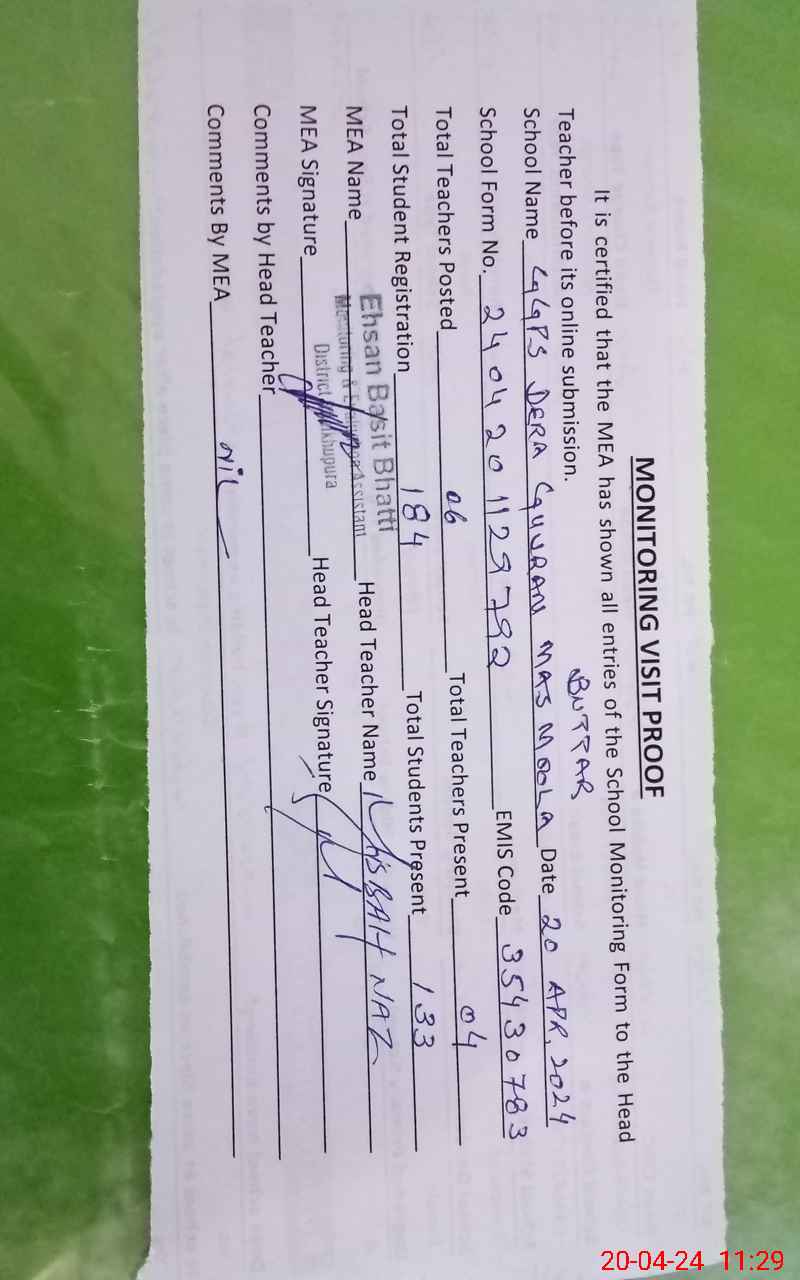 MONITORING VISIT PROOF
It is certified that the MEA has shown all entries of the School Monitoring Form to the Head
Teacher before its online submission.
BUTTAR
School Name GGPS DERA GUJJRAN MAJ MOOLA Date 20 APR, 2024
School Form No. 2404201129792 EMIS Code 35430783
Total Teachers Posted 06 Total Teachers Present 04
Total Student Registration 184 Total Students Present 133
Ehsan Basit Bhatti
MEA Name Head Teacher Name MISBAH NAZ
Monitoring & Evaluation Assistant
District
MEA Signature Head Teacher Signature
Comments by Head Teacher
Comments By MEA Nil
20-04-24 11:29